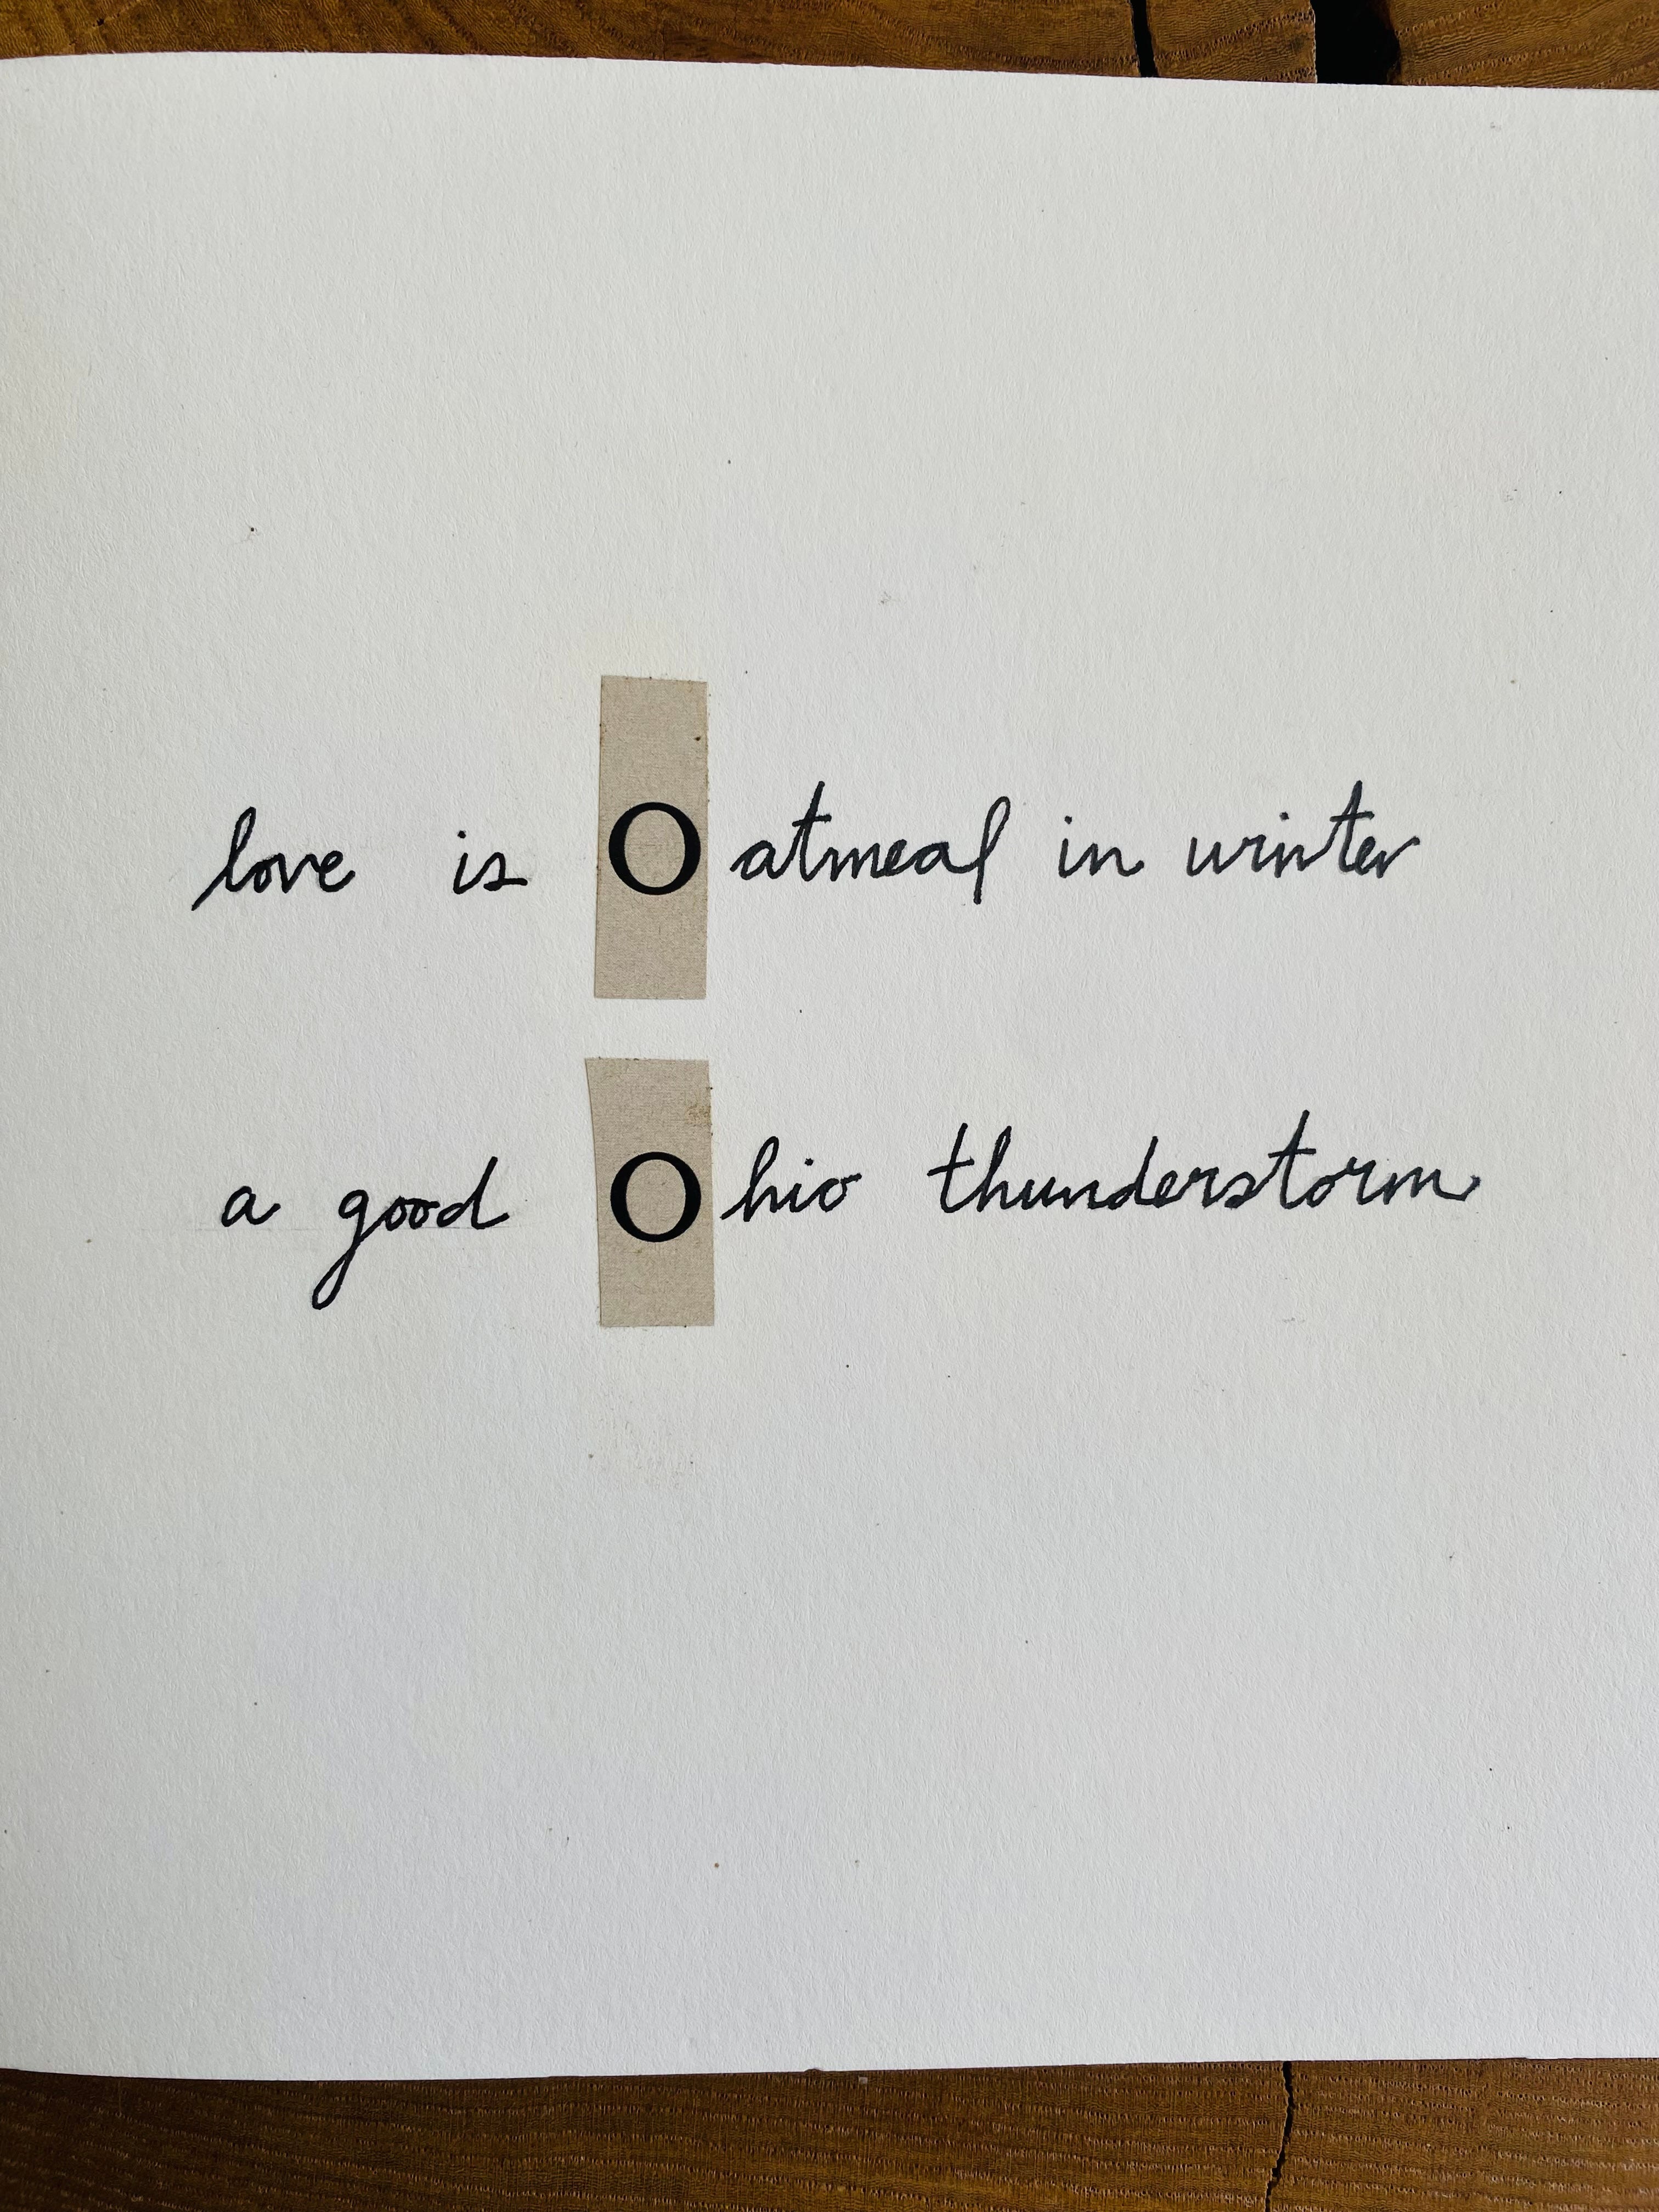 love is Oatmeal in winter
a good Ohio thunderstorm